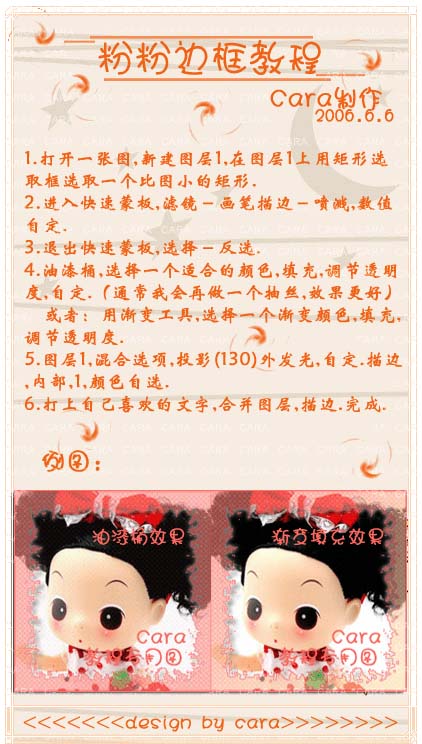 粉粉边框教程
Cara制作
2006.6.6
1.打开一张图,新建图层1,在图层1上用矩形选
取框选取一个比图小的矩形.
2.进入快速蒙板,滤镜－画笔描边－喷溅,数值
自定.
3.退出快速蒙板,选择－反选.
4.油漆桶,选择一个适合的颜色,填充,调节透明
度,自定.(通常我会再做一个抽丝,效果更好)
或者：用渐变工具,选择一个渐变颜色,填充,
调节透明度.
5.图层1,混合选项,投影(130)外发光,自定.描边
,内部,1,颜色自选.
6.打上自己喜欢的文字,合并图层,描边.完成.
例图：
油漆桶效果
渐变填充效果
Cara
教程专用图
Cara
教程专用图
<<<<<<<design by cara>>>>>>>>